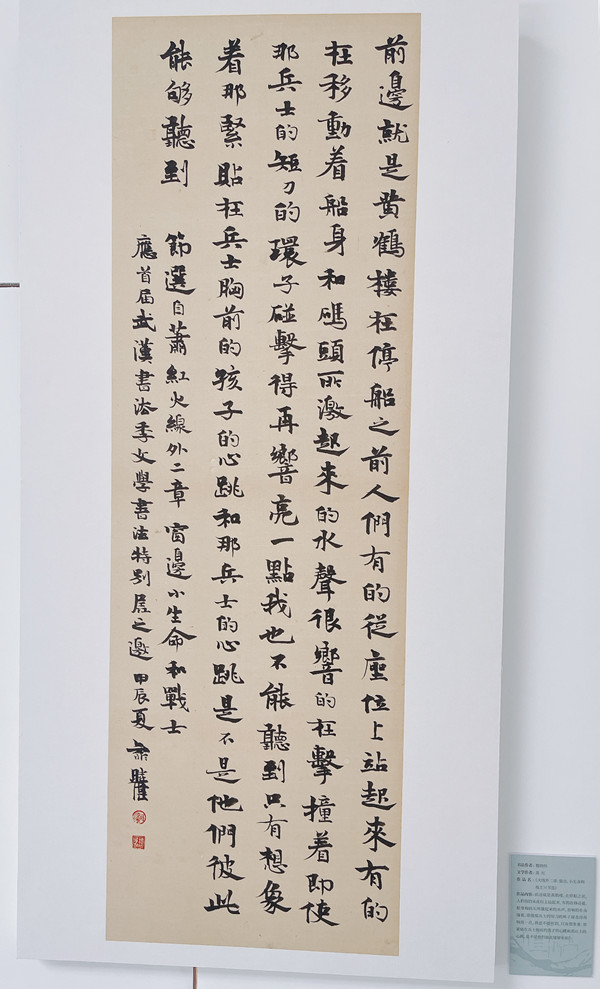 前邊就是黄鶴樓在停船之前人們有的從座位上站起來有的
在移動着船身和碼頭所激起來的水聲很響的在擊撞着即使
那兵士的短刀的環子碰擊得再響亮一點我也不能聽到只有想象
着那緊貼在兵士胸前的孩子的心跳和那兵士的心跳是不是他們彼此
能够聽到
節選自蕭紅火線外二章窗邊小生命和戰士
應首届武漢書法季文學書法特别展之邀甲辰夏